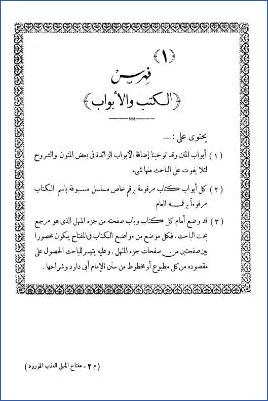 ﴿١﴾
فهرس
﴿الكتب والأبواب﴾
يحتوى على : ــ
(١) أبواب المتن وقد توخينا إضافة الأبواب الزائدة فى بعض المتون والشروح
لئلا يفوت على الباحث منها شىء
(٢) كل أبواب كتاب مرقومة برقم خاص مسلسل مسبوقة باسم الكتاب
مرقوماً برقمه العام
(٣) قد وضع أمام كل كتاب وباب صفحته من جزء المنهل الذى هو مرجع
بحث الباحث. فكل موضع من مواضع الكتاب فى المفتاح يكون محصورا
بين صفحتين من صفحات جزء المنهل. وعليه يتيسر للباحث الحصول على
مقصوده من كل مطبوع أو مخطوط من سنن الإمام أبى داود وشراحها.
(م ٢ - مفتاح المنهل العذب المورود)